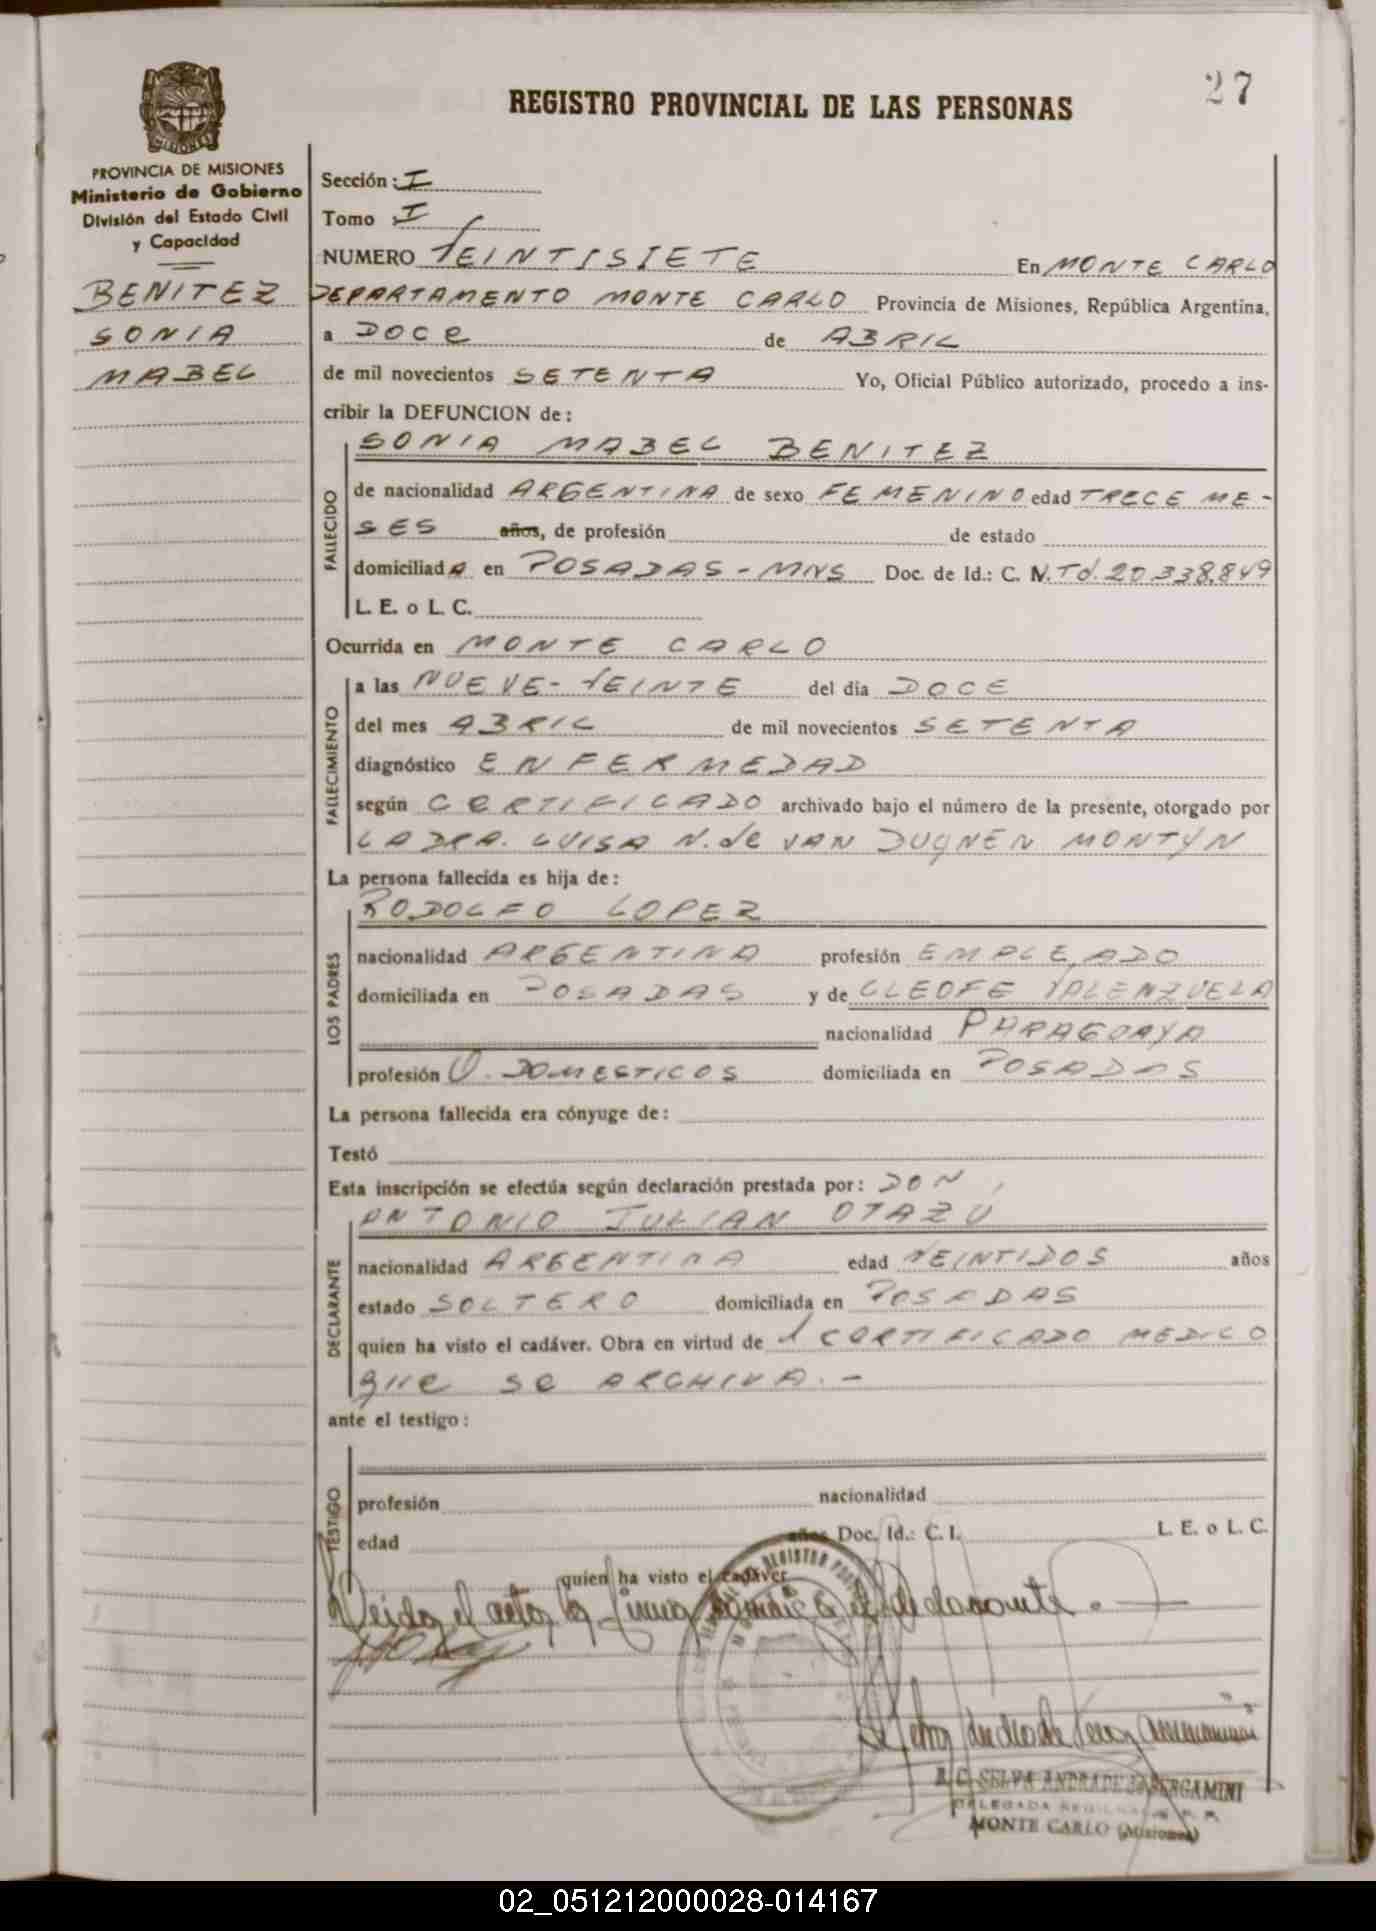 27
REGISTRO PROVINCIAL DE LAS PERSONAS
MISIONES
PROVINCIA DE MISIONES
Ministerio de Gobierno
División del Estado Civil
y Capacidad
BENITEZ
SONIA
MABEL
Sección: I
Tomo I
NUMERO VEINTISIETE En MONTE CARLO
DEPARTAMENTO MONTE CARLO Provincia de Misiones, República Argentina,
a DOCE de ABRIL
de mil novecientos SETENTA Yo, Oficial Público autorizado, procedo a ins-
cribir la DEFUNCION de:
SONIA MABEL BENITEZ
FALLECIDO
de nacionalidad ARGENTINA de sexo FEMENINO edad TRECE ME-
SES años, de profesión de estado
domiciliada en POSADAS - MNS Doc. de Id.: C. N. Td. 20.338.849
L. E. o L. C.
Ocurrida en MONTE CARLO
FALLECIMIENTO
a las NUEVE - VEINTE del día DOCE
del mes ABRIL de mil novecientos SETENTA
diagnóstico ENFERMEDAD
según CERTIFICADO archivado bajo el número de la presente, otorgado por
LA DRA. LUISA N. de VAN DUYNEN MONTYN
La persona fallecida es hija de:
RODOLFO LOPEZ
LOS PADRES
nacionalidad ARGENTINA profesión EMPLEADO
domiciliada en POSADAS y de CLEOFE VALENZUELA
nacionalidad PARAGUAYA
profesión Q. DOMESTICOS domiciliada en POSADAS
La persona fallecida era cónyuge de:
Testó
Esta inscripción se efectúa según declaración prestada por: DON
ANTONIO JULIAN OTAZÚ
DECLARANTE
nacionalidad ARGENTINA edad VEINTIDOS años
estado SOLTERO domiciliada en POSADAS
quien ha visto el cadáver. Obra en virtud de 1 CERTIFICADO MEDICO
que se ARCHIVA. -
ante el testigo:
TESTIGO
profesión nacionalidad
edad años Doc. Id.: C. I. L. E. o L. C.
quien ha visto el cadáver
Leida el acta, la firma el declarante. -
R. C. SELVA ANDRADE de BERGAMINI
DELEGADA
MONTE CARLO (Misiones)
02_051212000028-014167